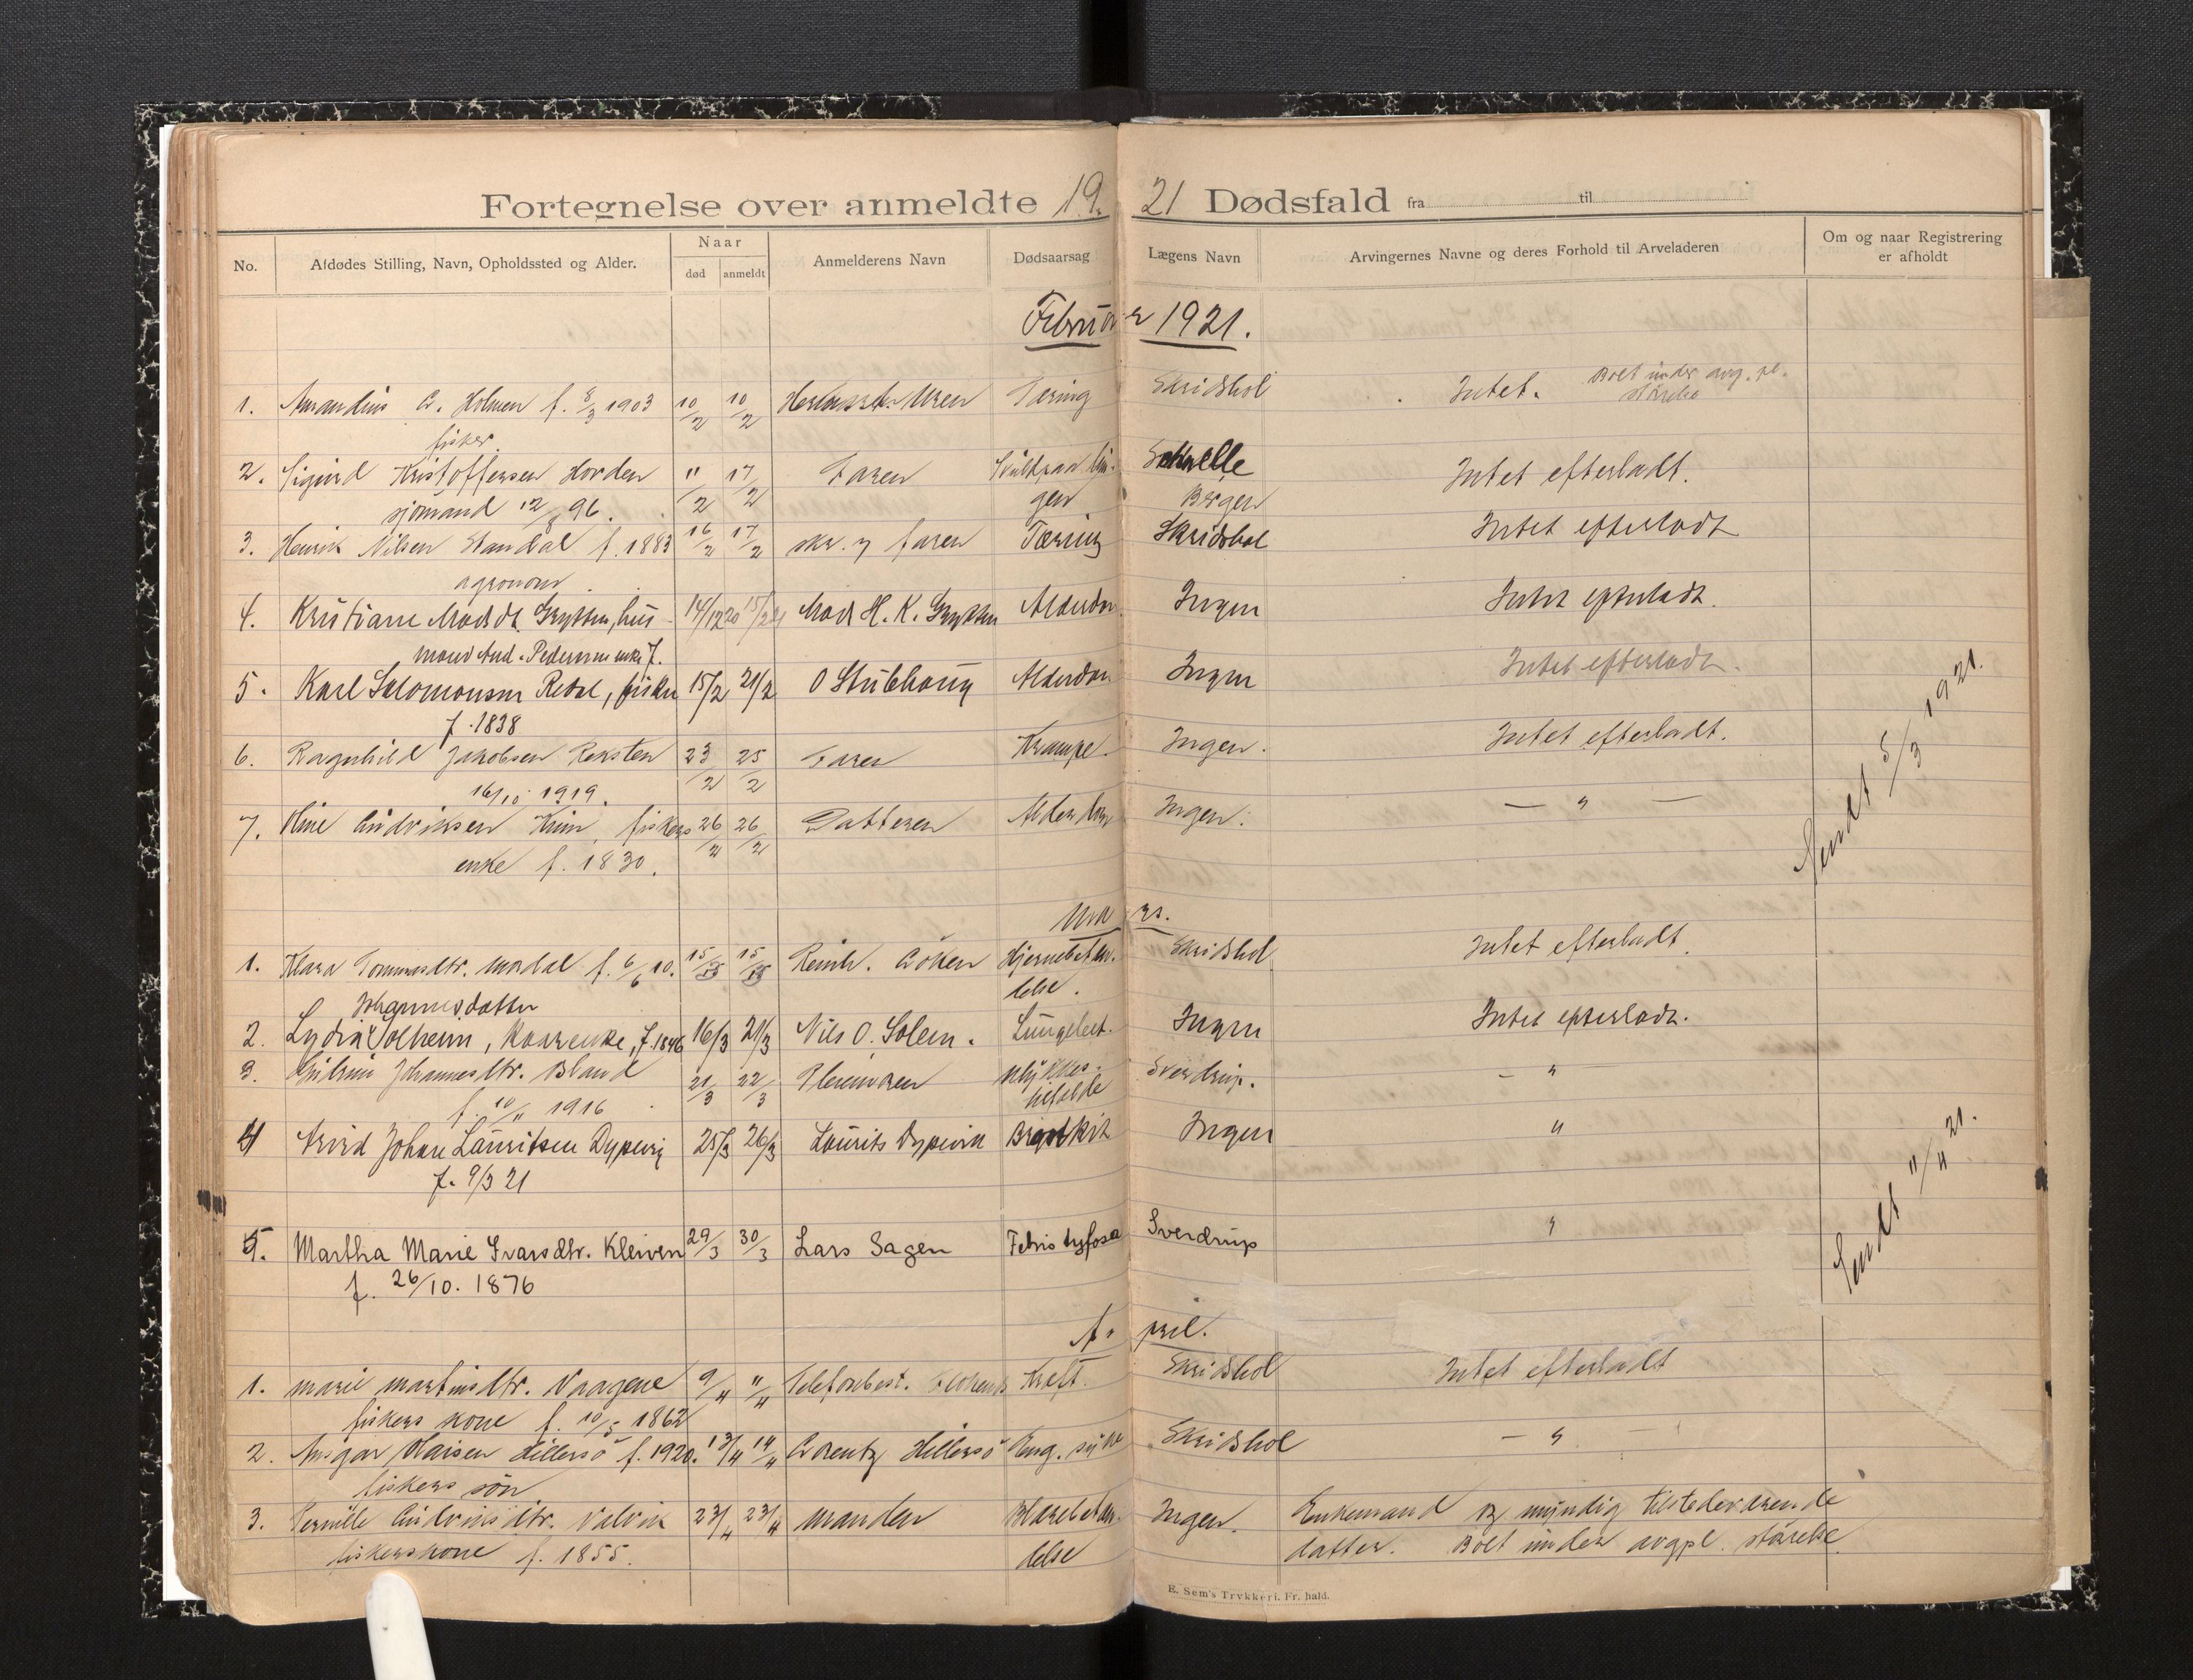 Fortegnelse over anmeldte 19 21 Dødsfald fra til
No. Afdødes Stilling, Navn, Opholdssted og Alder. Naar død anmeldt Anmelderens Navn Dødsaarsag Lægens Navn Arvingernes Navne og deres Forhold til Arveladeren Om og naar Registrering er afholdt
Februar 1921.
1. A. Holmen f. 8/3 1903 10/2 10/2 Tæring Skridshol Intet. Boet under avg. pl.
fisker størelse
2. Sigurd Kristoffersen Horden 11/2 17/2 Faren Intet efterladt.
sjömand 12/8 96. gen Bergen
3. Henrik Nilsen Standal f. 1883 16/2 17/2 skr. Faren Tæring Skridshol Intet efterladt
agronom
4. Kristiane Madsdt. Grytten, hus- 14/12 20 15/2 21 Mads H. K. Grytten Alderdom Ingen Intet efterladt.
mand And. Pedersens enke f.
5. Karl Salomonsen Redal, fisker 15/2 21/2 O Stubhaug Alderdom Ingen Intet efterladt.
f. 1838
6. Ragnhild Jakobsen Reksten 23/2 25/2 Faren Krampe. Ingen. Intet efterladt.
16/10 1919.
7. Ludviksen fiskers 26/2 26/2 Datteren Alderdom Ingen. — " — Sendt 5/3 1921.
enke f. 1830.
Mars.
1. Klara Tommasdtr. Mordal f. 6/6 10. 15/3 15/3 Reinh. Hjernebeten- Skridshol Intet efterladt.
delse.
Johannesdatter
2. Lydia Solheim, f. 1846 16/3 21/3 Nils O. Solem. Lungebet. Ingen Intet efterladt.
3. Johannesdtr. Bland 21/3 22/3 Ulykkes- Sverdrup. — "
f. 10/11 1916 tilfælde
4 Arvid Johan Lauritsen Dypevig 25/3 26/3 Laurits Dypevik Ingen "
f. 9/3 21
5. Martha Marie Ivarsdtr. Kleiven 29/3 30/3 Lars Sagen Febris tyfosa Sverdrup " Sendt 11/4 21.
f. 26/10. 1876
April.
1. Marie Martinsdtr. Vaagene 9/4 11/4 Telefonbest. Kræft. Skridshol Intet efterladt
fiskers kone f. 10/5 1862
2. Ansgar Hansen Hillersö f. 1920. 13/4 14/4 Arentz Hillersö Eng. syke Skridshol — "
fiskers sön
3. Pernille Ludviksdtr. Valvik 23/4 23/4 Manden Blærebeten- Ingen. Enkemand og myndig tilstedeværende
fiskerskone f. 1855. delse datter. Boet under avgpl. størelse
E. Sem's Trykkeri. Fr. hald.